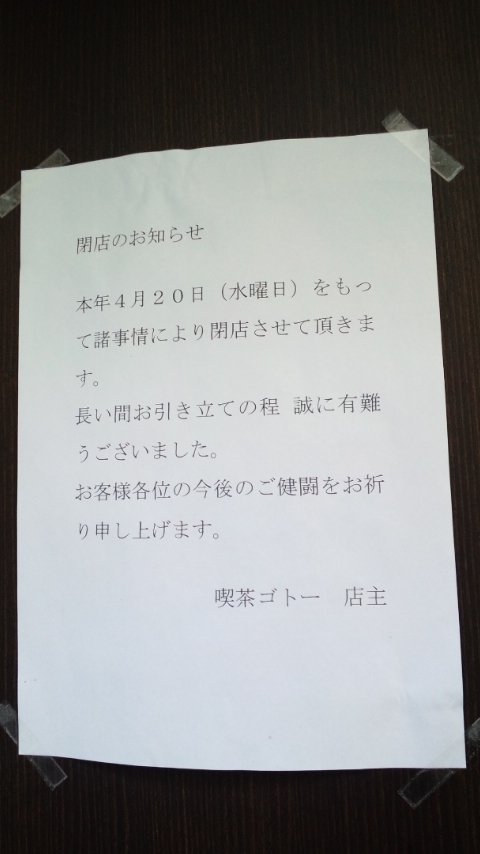 閉店のお知らせ
本年４月２０日（水曜日）をもっ
て諸事情により閉店させて頂きま
す。
長い間お引き立ての程　誠に有難
うございました。
お客様各位の今後のご健闘をお祈
り申し上げます。
喫茶ゴトー　店主